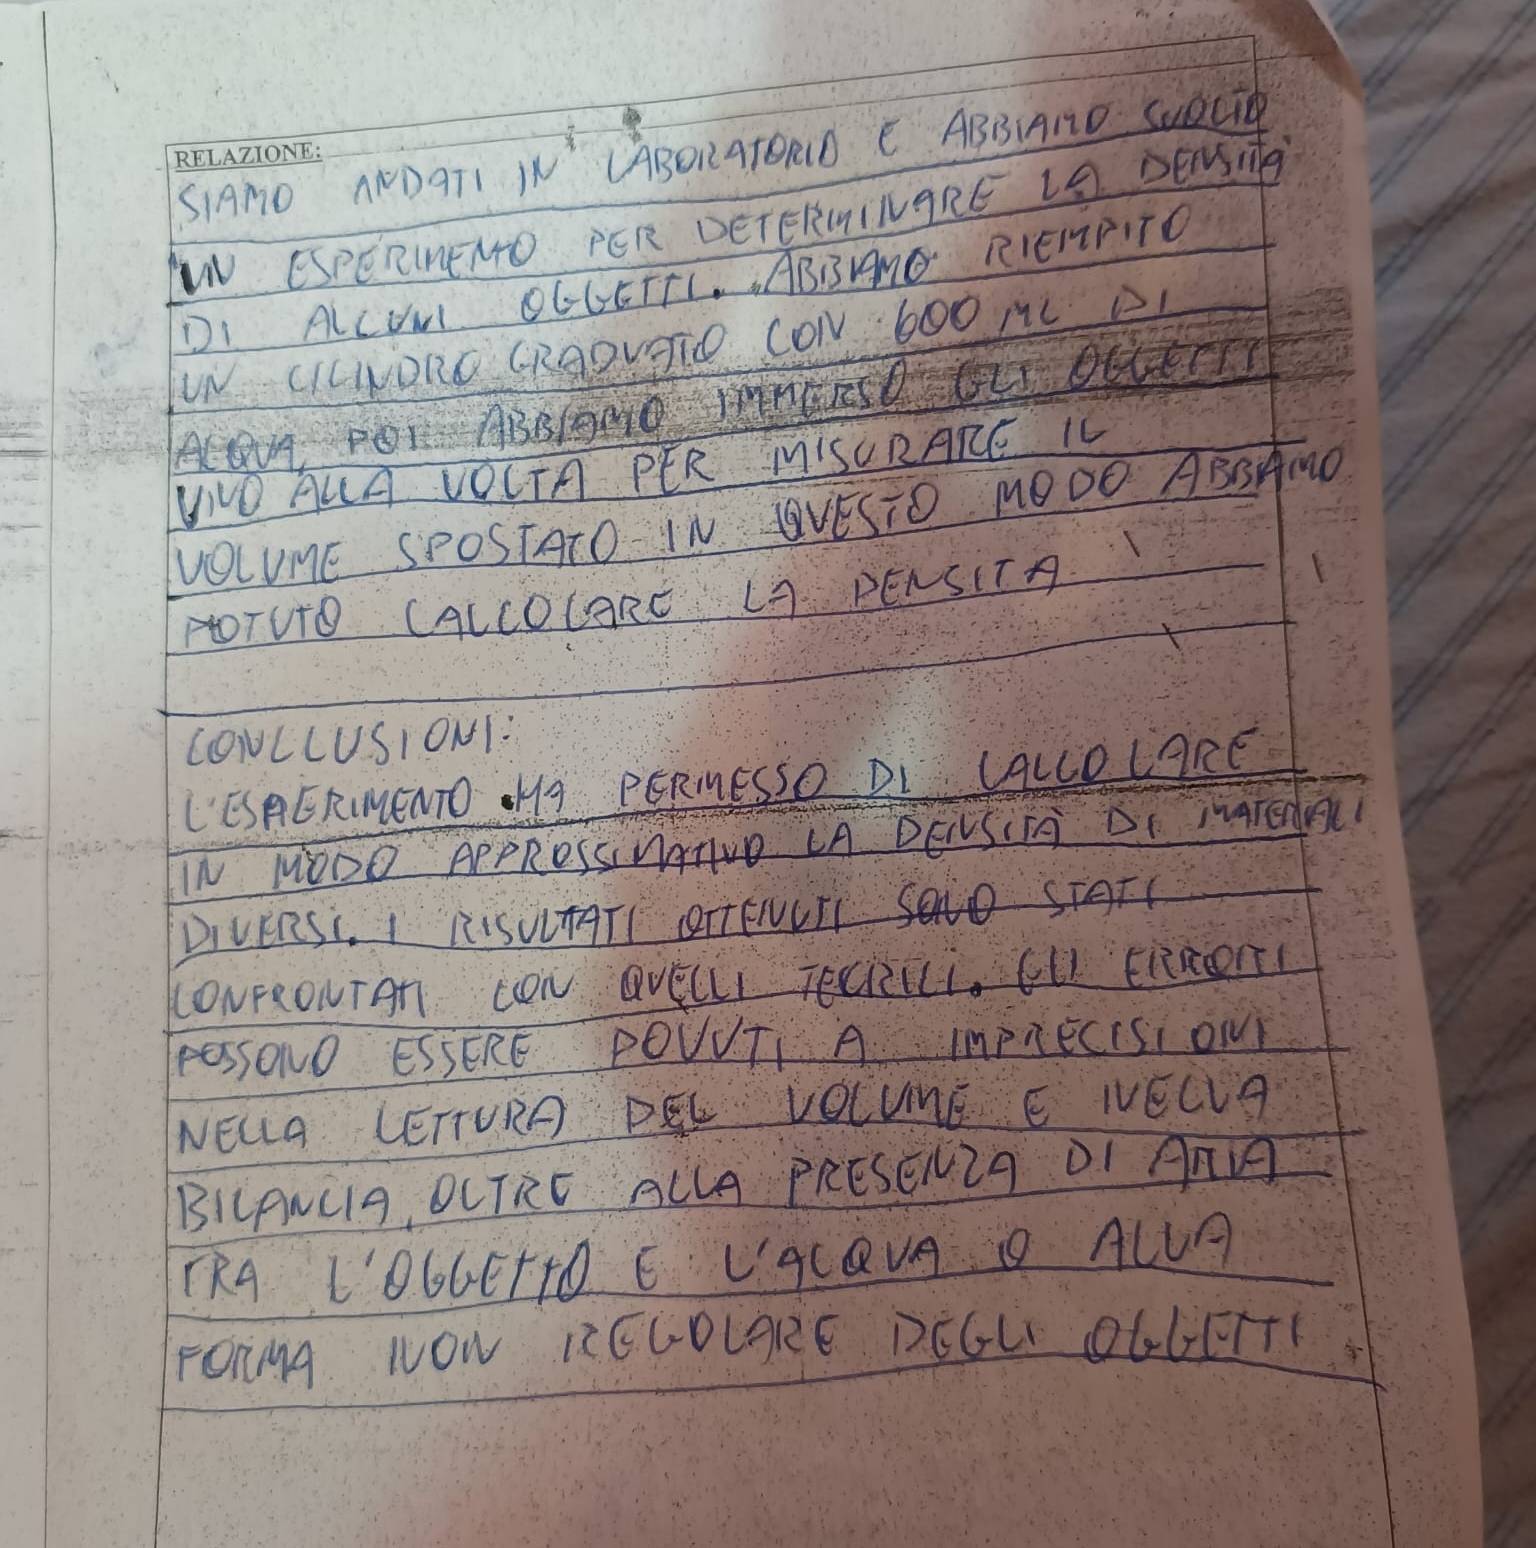 RELAZIONE:
SIAMO ANDATI IN LABORATORIO E ABBIAMO SVOLTO
UN ESPERIMENTO PER DETERMINARE LA DENSITÀ
DI ALCUNI OGGETTI. ABBIAMO RIEMPITO
UN CILINDRO GRADUATO CON 600 ML DI
ACQUA, POI ABBIAMO IMMERSO GLI OGGETTI
UNO ALLA VOLTA PER MISURARE IL
VOLUME SPOSTATO IN QUESTO MODO ABBIAMO
POTUTO CALCOLARE LA DENSITA
CONCLUSIONI:
L'ESPERIMENTO HA PERMESSO DI CALCOLARE
IN MODO APPROSSIMATIVO LA DENSITÀ DI MATERIALI
DIVERSI. I RISULTATI OTTENUTI SONO STATI
CONFRONTATI CON QUELLI TEORICI. GLI ERRORI
POSSONO ESSERE DOVUTI A IMPRECISIONI
NELLA LETTURA DEL VOLUME E NELLA
BILANCIA, OLTRE ALLA PRESENZA DI ARIA
TRA L'OGGETTO E L'ACQUA O ALLA
FORMA NON REGOLARE DEGLI OGGETTI